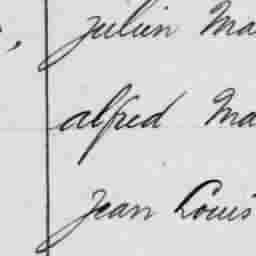 Julien Ma
alfred Ma
Jean Louis